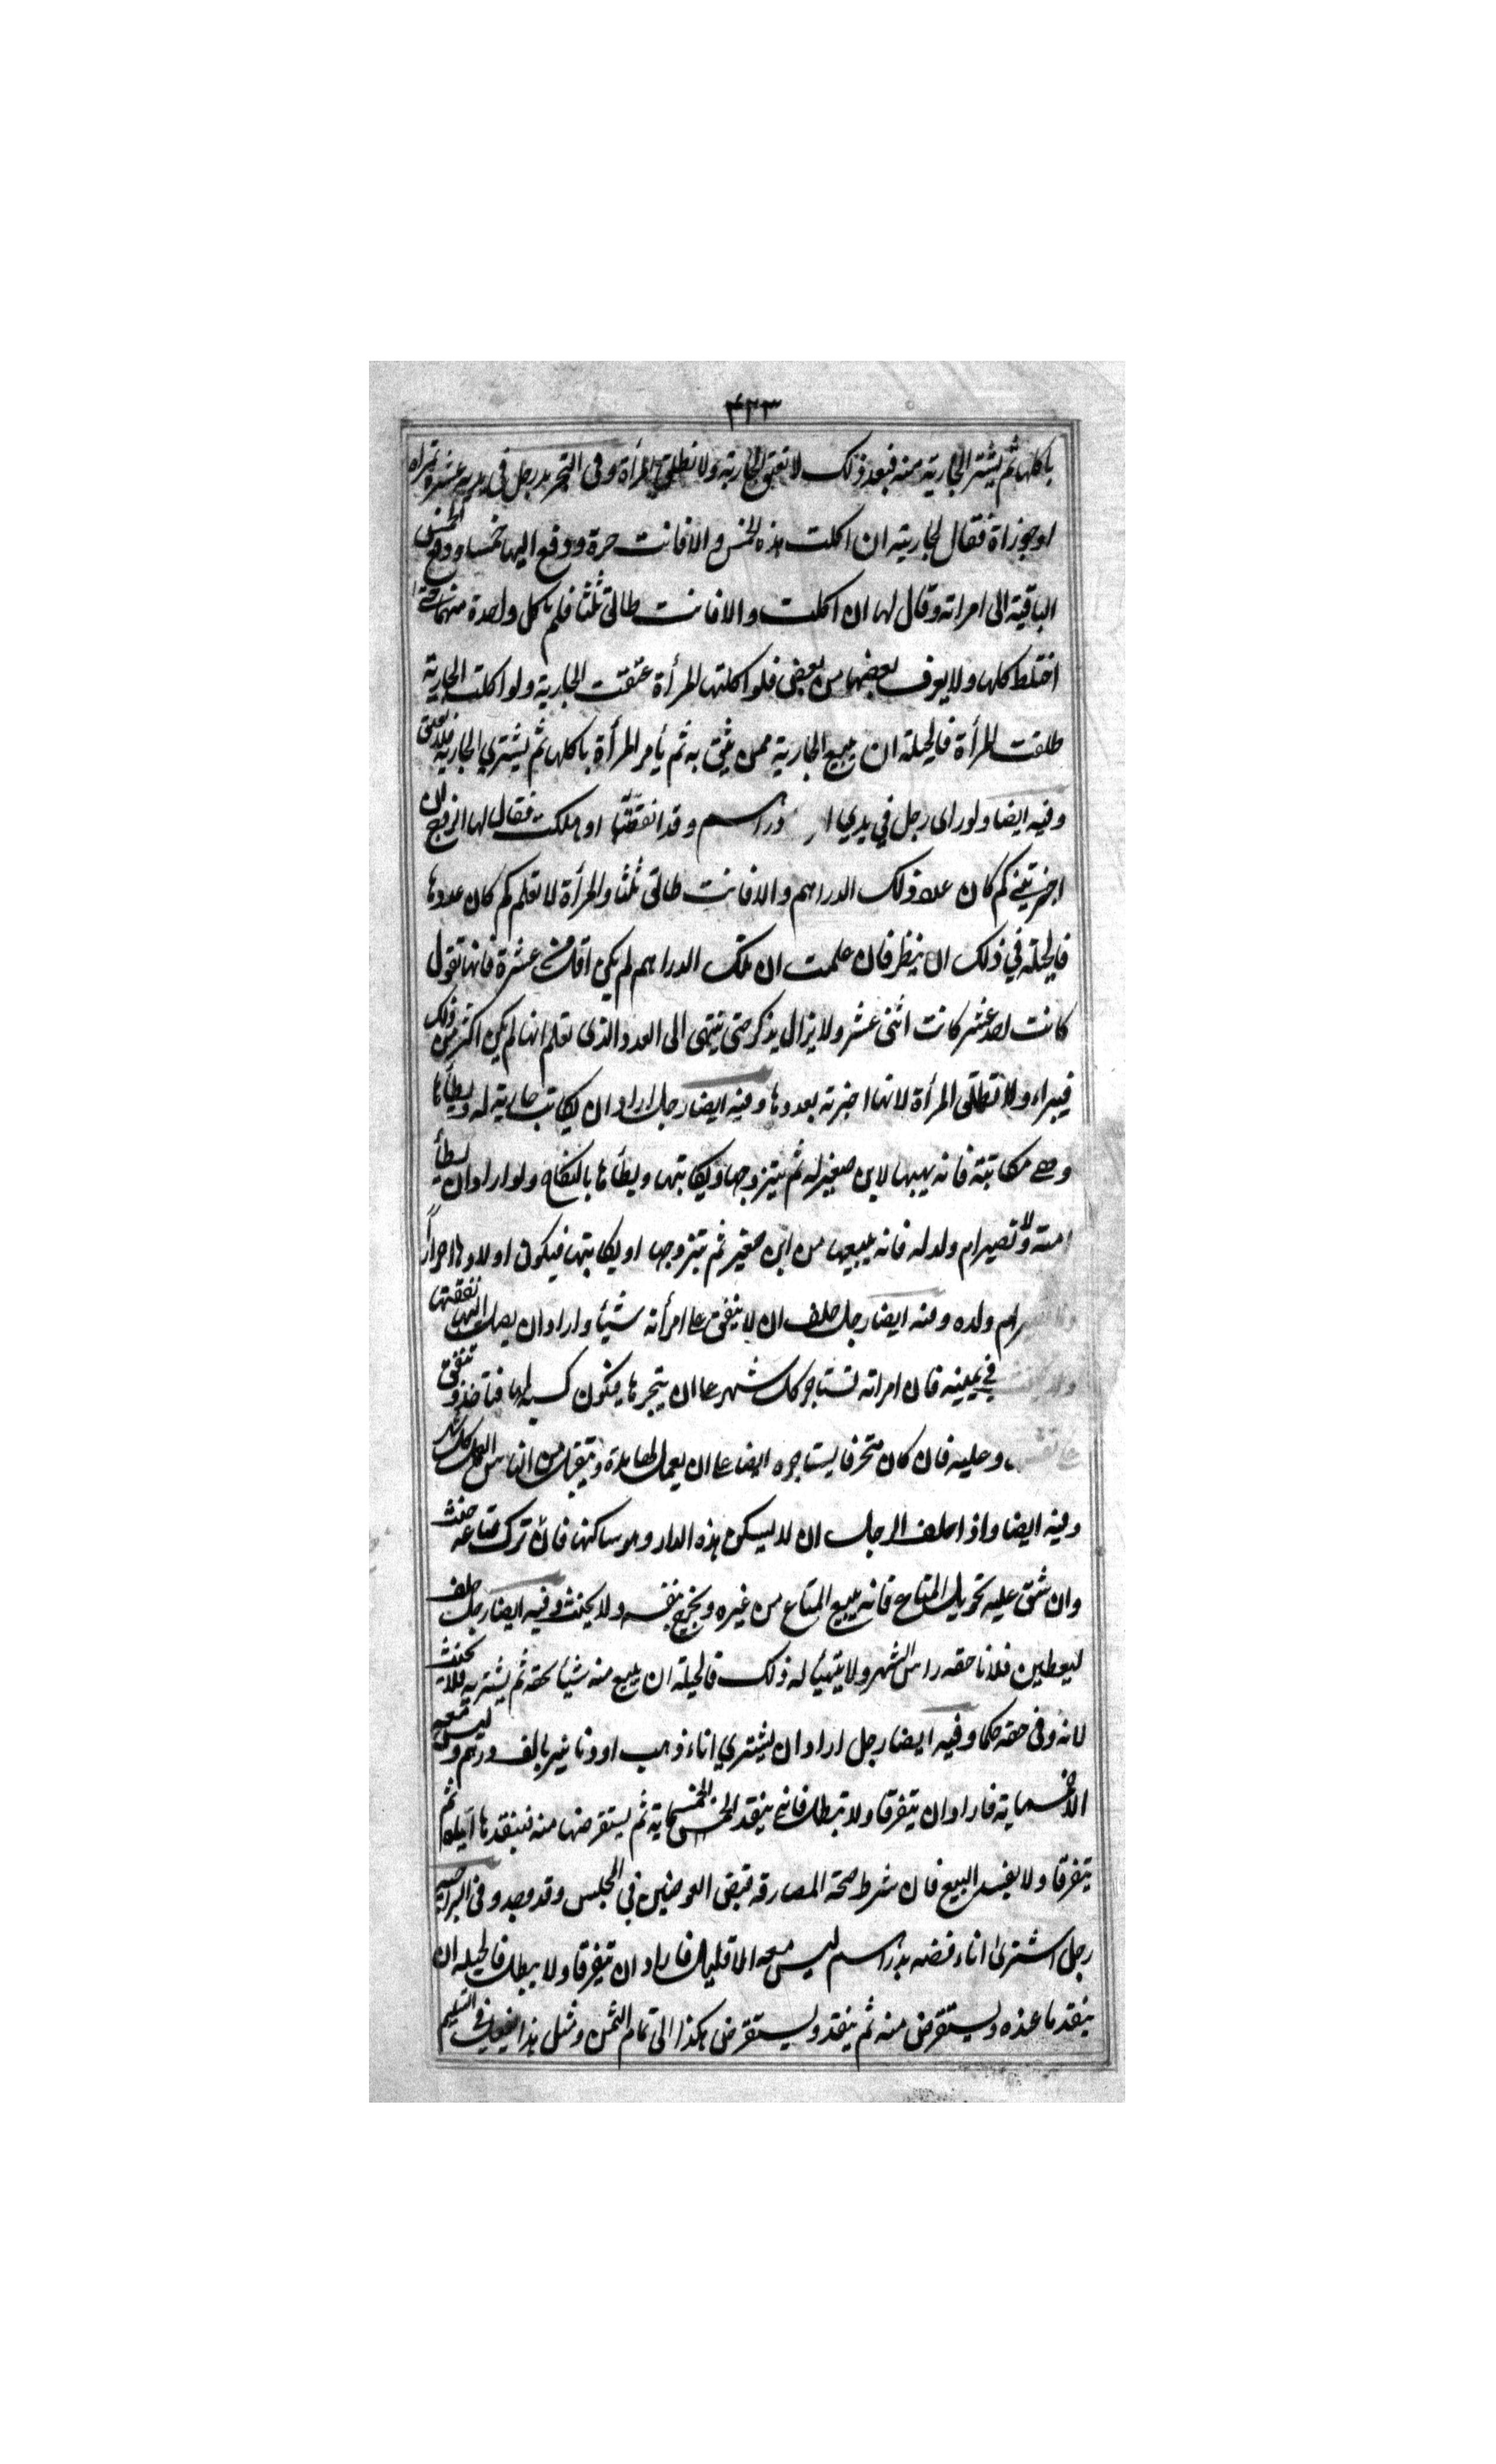 ۴۲۳
باكلها ثم يشتر الجارية منه فبعد ذلك لا تعتق الجارية ولا تطلق المرأة وفى التجريد رجل في يديه عشرة تمراة
او جوزاة فقال لجاريته ان اكلت هذه الخمس والا فانت حرة ودفع اليها خمسا ودفع الخمس
الباقية الى امراته وقال لها ان اكلت والا فانت طالق ثلثا فلم ياكل واحدة منهما حتى
اختلط كلها ولا يعرف بعضها من بعض فلو اكلتها المرأة عتقت الجارية ولو اكلت الجارية
طلقت المرأة فالحيلة ان يبيع الجارية ممن يثق به ثم يأمر المرأة باكلها ثم يشتري الجارية فلا تعتق
وفيه ايضا ولو راى رجل في يدي دراهم وقد انفقتها او هلكت فقال لها الزوج ان
اخبرتيني كم كان عدد ذلك الدراهم والا فانت طالق ثلثا والمرأة لا تعلم كم كان عددها
فالحيلة في ذلك ان ينظر فان علمت ان تلك الدراهم لم يكن اقل من عشرة فانها تقول
كانت احد عشر كانت اثنى عشر ولا يزال يذكر حتى ينتهى الى العدد الذى تعلم انها لم يكن اكثر من ذلك
فيبراء ولا تطلق المرأة لانها اخبرته بعددها وفيه ايضا رجل اراد ان يكاتب جارية له ويطأها
وهى مكاتبة فانه يهبها لابن صغير له ثم يتزوجها ويكاتبها ويطأها بالنكاح ولو اراد ان يطأ
امته ولا تصير ام ولد له فانه يبيعها من ابن صغير ثم يتزوجها او يكاتبها فيكون اولادها احراراً
ام ولده وفيه ايضا رجل حلف ان لا ينفق على امرأته شيأ واراد ان يصل اليها نفقتها
في يمينه فان امراته تستاجر كل شهر على ان يتجر لها يكون كسبه لها فتاخذ وتنفق
وعليه فان كان متحرفا يستاجره ايضا على ان يعمل لها مدة ويتقبل من الناس العمل كل شهر
وفيه ايضا واذا حلف الرجل ان لا يسكن هذه الدار وهو ساكنها فان ترك متاعه حنث
وان شق عليه تحويل المتاع فانه يبيع المتاع من غيره ويخرج بنفسه ولا يحنث وفيه ايضا رجل حلف
ليعطين فلانا حقه راس الشهر ولا يتهيأ له ذلك فالحيلة ان يبيع منه شيأ بحقه ثم يشتريه فلا يحنث
لانه وفى حقه حكما وفيه ايضا رجل اراد ان يشتري اناء ذهب او دنانير بالف درهم وليس معه
الا خمسماية فاراد ان يتفرقا ولا تبطل فانه ينقد الخمسماية ثم يستقرضها منه فينقدها اياه ثم
يتفرقا ولا يفسد البيع فان شرط صحة المصارفة قبض العوضين في المجلس وقد وجد وفى السراجية
رجل اشترى اناء فضه بدراهم ليس معه الا قليل فاراد ان يتفرقا ولا يبطل فالحيلة ان
ينقد ما عنده ويستقرض منه ثم ينقد ويستقرض هكذا الى تمام الثمن ومثل هذا يفعل في السلم